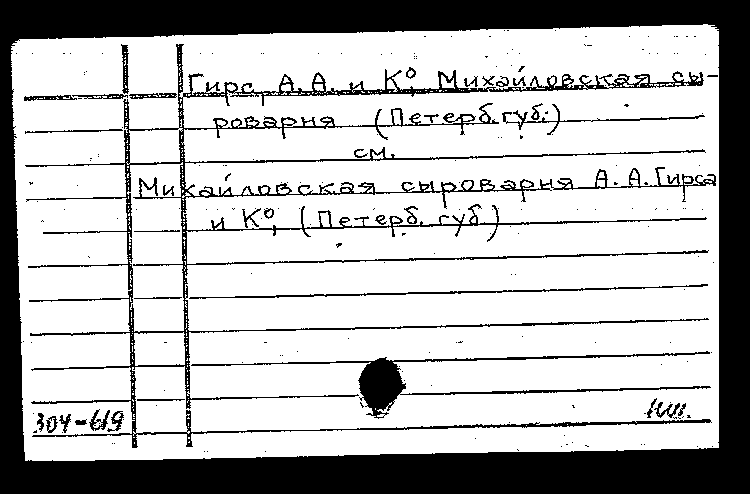 Гирс, А.А. и К°, Михайловская сы-
роварня (Петерб. губ.)
см.
Михайловская сыроварня А.А. Гирса
и К°, (Петерб. губ)
304-619